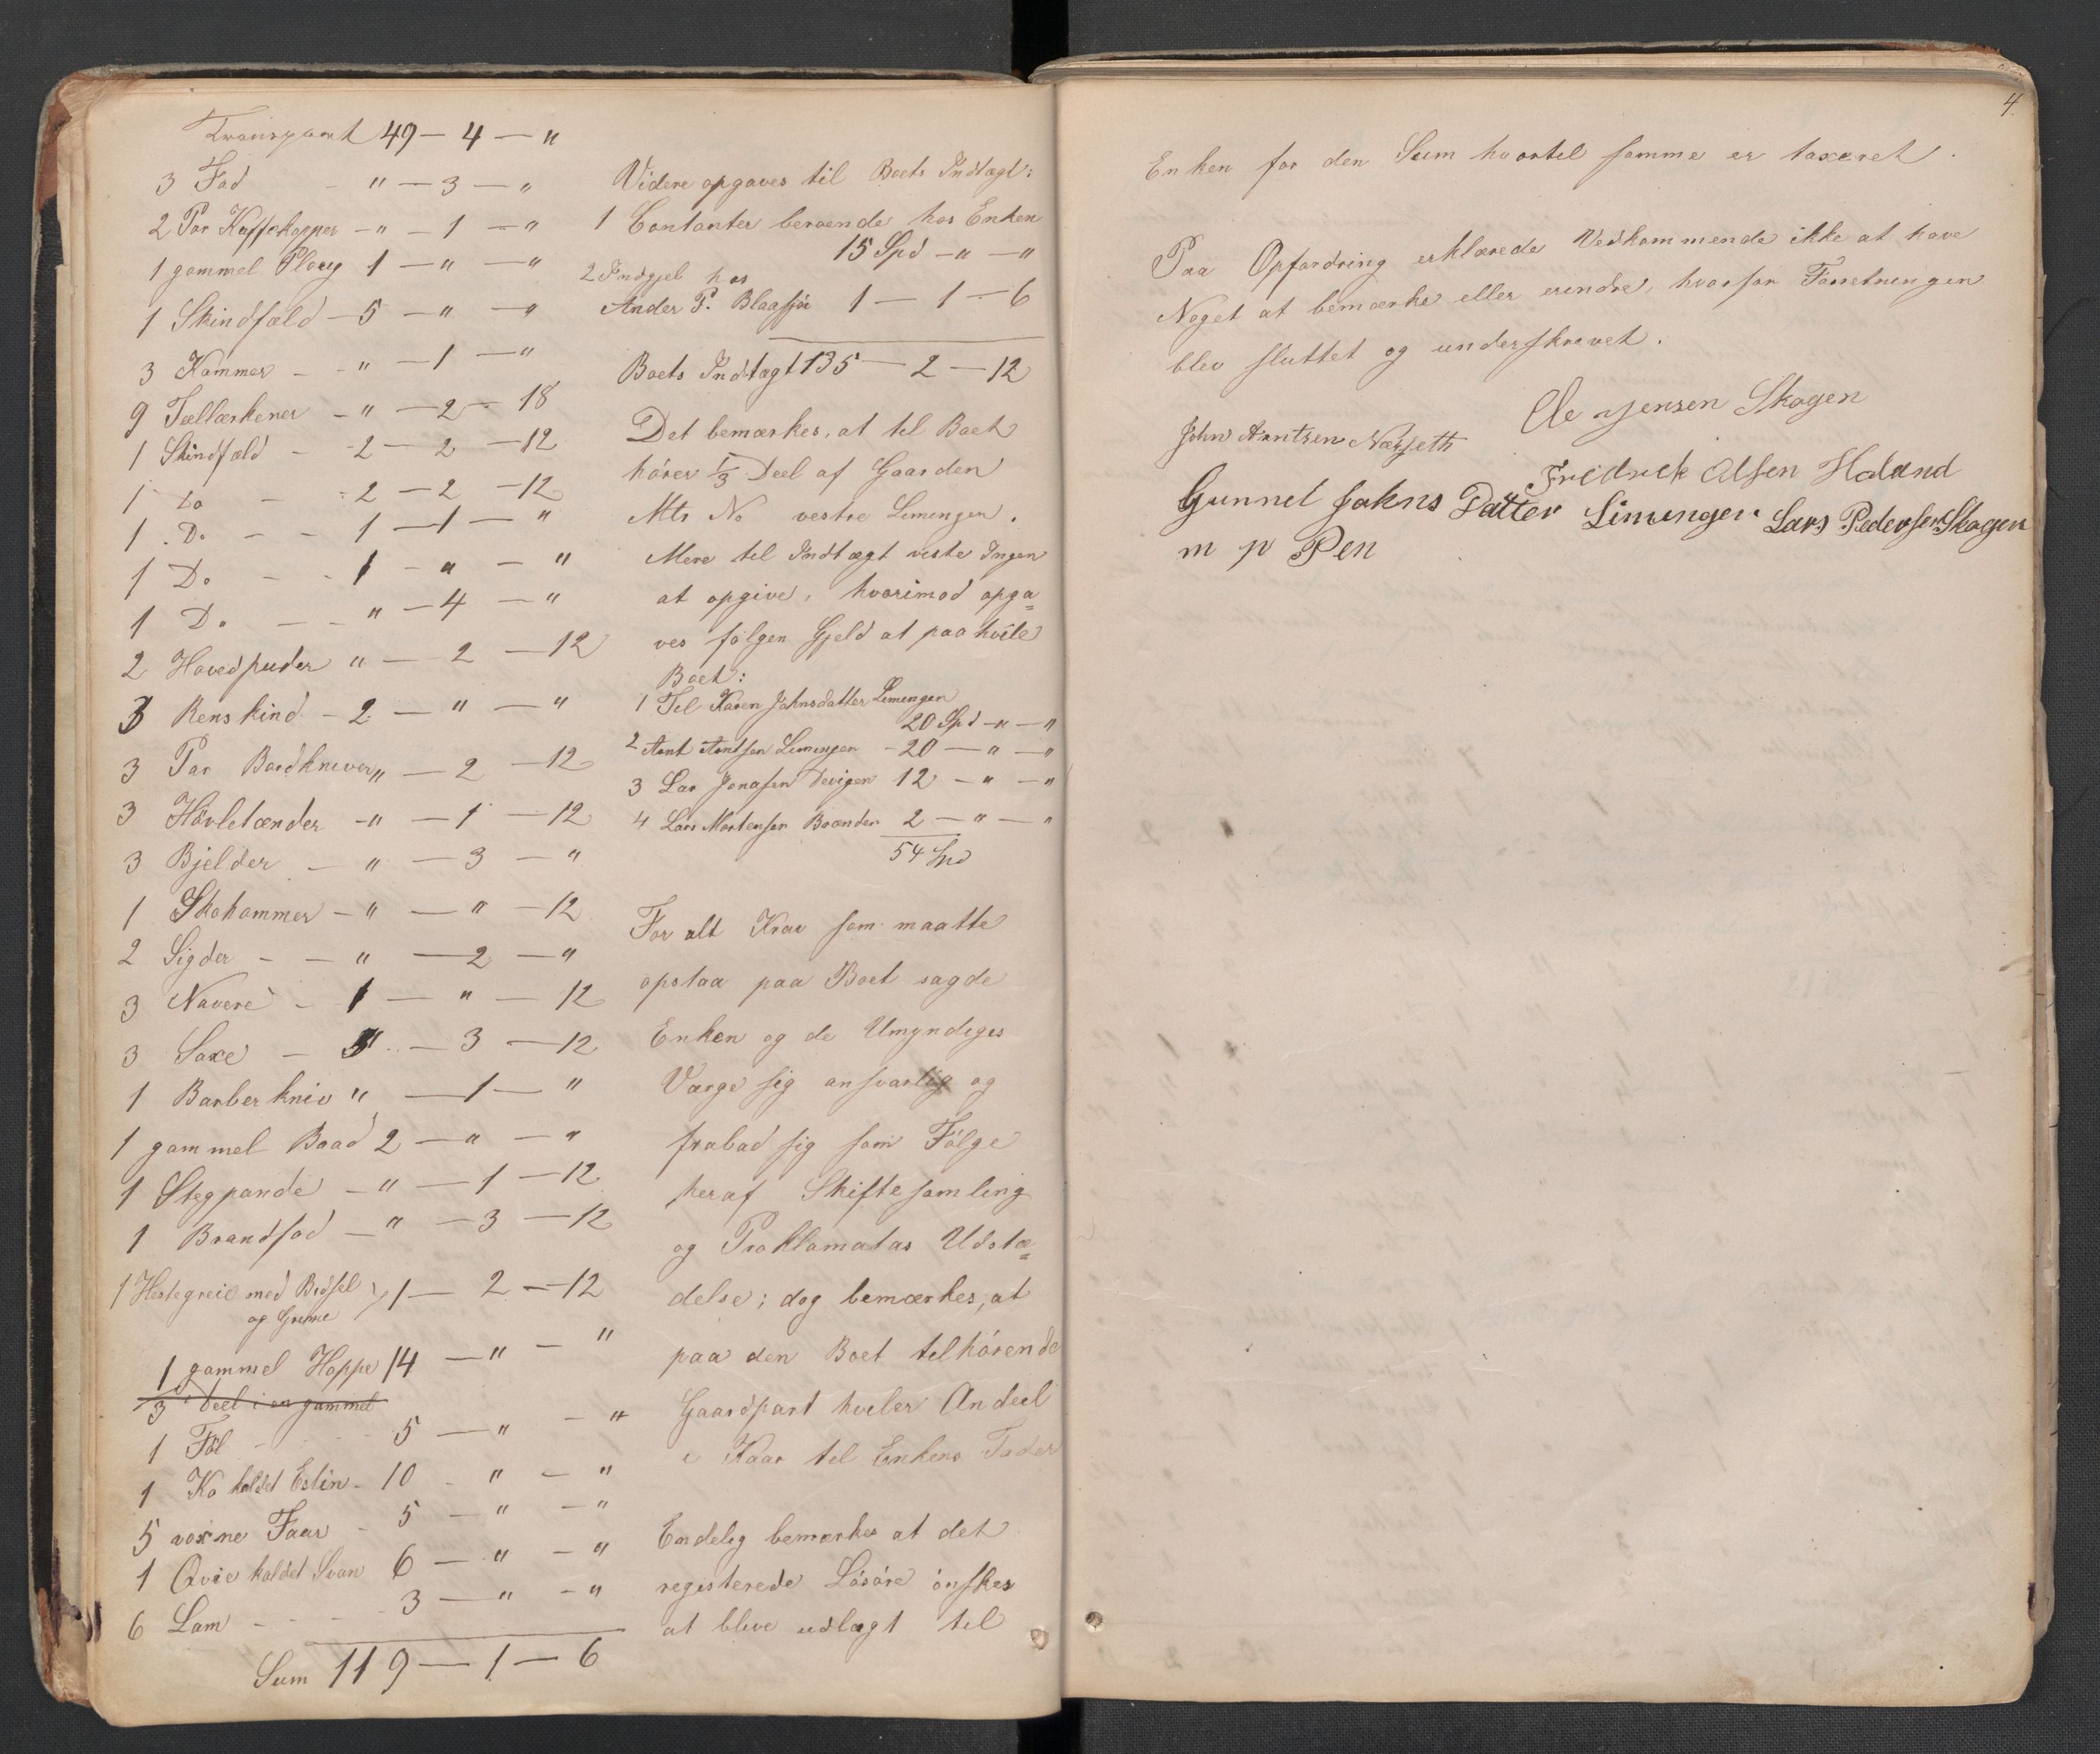 Transport 49 — 4 — "
3 Fad - " — 3 — "
2 Par Kaffekopper - " — 1 — "
1 gammel Ploug 1 — " — "
1 Skindfæld — 5 — " — "
3 Kammer - - " — 1 — "
9 Tællærkener - " — 2 — 18
1 Skindfæld - 2 — 2 — 12
1 Do - 2 — 2 — 12
1 Do - - 1 — 1 — "
1 Do - - 1 — " — "
1 Do - - " — 4 — "
2 Hovedpuder " — 2 — 12
3 Renskind - 2 — " — "
3 Par Bordkniver " — 2 — 12
3 Hövletænder - " — 1 — 12
3 Bjelder - " — 3 — "
1 Skohammer - " — " — 12
2 Sigder - - " — 2 — "
3 Navere - 1 — " — 12
3 Saxe - " — 3 — 12
1 Barberkniv " — 1 — "
1 gammel Baad 2 — " — "
1 Stegpande - " — 1 — 12
1 Brandfod - " — 3 — 12
1 Hestegreie med Bidsel
og Grime } 1 — 2 — 12
1 gammel Hoppe 14 — " — "
3 Deel i en gammel
1 Föl - - - 5 — " — "
1 Ko kaldet Estin - 10 — " — "
5 voxne Faar - 5 — " — "
1 Qvie kaldet Svan 6 — " — "
6 Lam - - - 3 — " — "
Sum 119 — 1 — 6
Videre opgaves til Boets Indtægt:
1 Contanter beroende hos Enken
15 Spd — " — "
2 Indgjel hos
Ander P. Blaasjö 1 — 1 — 6
Boets Indtægt 135 — 2 — 12
Det bemærkes, at til Boet
hörer 1/3 Deel af Gaarden
Mtr No vestre Limingen.
Mere til Indtægt viste Ingen
at opgive, hvorimod opga=
ves fölgen Gjeld at paahvile
Boet:
1 Til Karen Johnsdatter Limingen
20 Spd — " — "
2 Arnt Arntsen Limingen - 20 — " — "
3 Lar Jonasen Devigen 12 — " — "
4 Lars Mortensen Brænden 2 — " — "
54 Spd
For alt Krav som maatte
opstaa paa Boet sagde
Enken og de Umyndiges
Værge sig ansvarlig og
frabad sig som Fölge
heraf Skiftesamling
og Proklamatas Udstæ=
delse; dog bemærkes, at
paa den Boet tilhörende
Gaardpart hviler Andeel
i Kaar til Enkens Fader
Endelig bemærkes at det
registerede Lösöre önskes
at blive udlagt til
4.
Enken for den Sum hvortil samme er taxeret.
Paa Opfordring erklærede Vedkommende ikke at have
Noget at bemærke eller erindre, hvorfor Forretningen
blev sluttet og underskrevet.
Ole Jensen Skogen
John Arntsen Næsseth
Fredrek Olsen Holand
Gunnel Johns Datter Limingen Lars Pedersen Skogen
m p Pen